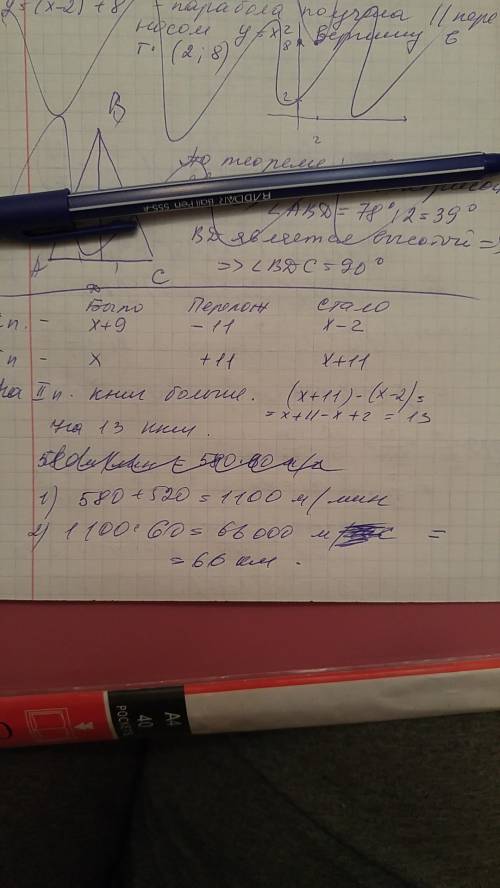 y=(x-2)²+8 - парабола получена // пере
носом y=x² вершину в
т. (2; 8)
8
2
2
B
По теореме
∠ABD = 78° : 2 = 39°
BD является высотой =>
=> ∠BDC = 90°
A
D
C
Было Перелож Стало
Iп. - x+9 -11 x-2
IIп - x +11 x+11
На IIп. книг больше. (x+11)-(x-2)=
= x+11-x+2 = 13
на 13 книг.
1) 580 + 520 = 1100 м/мин
2) 1100·60 = 66000 м =
= 66 км.
RADAR Ball Pen 555-F
A4
40
POCKETS